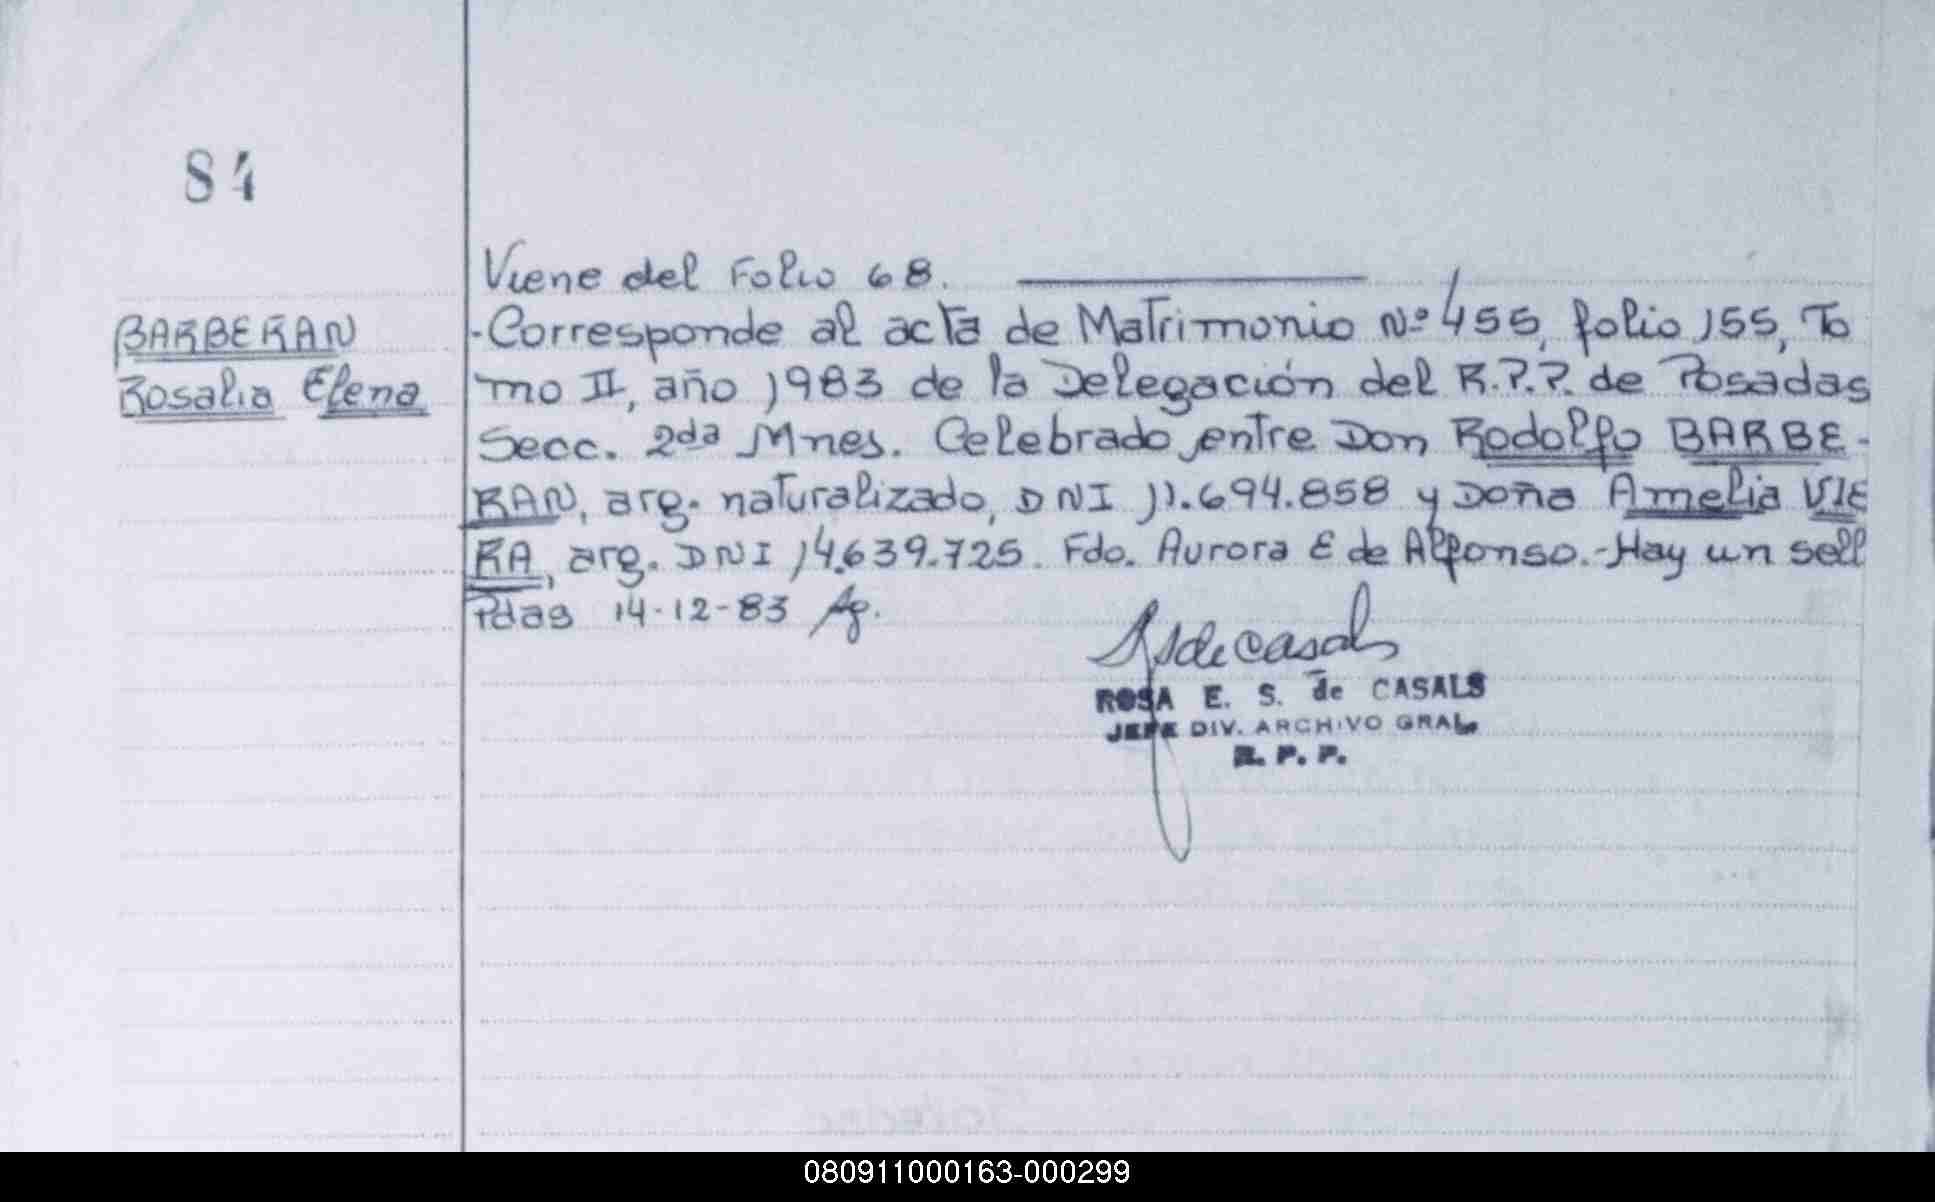 84
Viene del Folio 68.
BARBERAN
Rosalia Elena
-Corresponde al acta de Matrimonio Nº 455, folio 155, To
mo II, año 1983 de la Delegación del R.P.P. de Posadas
Secc. 2da Mnes. Celebrado entre Don Rodolfo BARBE-
RAN, arg. naturalizado, DNI 11.694.858 y Doña Amelia VIE
RA, arg. DNI 14.639.725. Fdo. Aurora E de Alfonso.-Hay un sell
Pdas 14-12-83
ROSA E. S. de CASALS
JEFE DIV. ARCHIVO GRAL.
R. P. P.
080911000163-000299